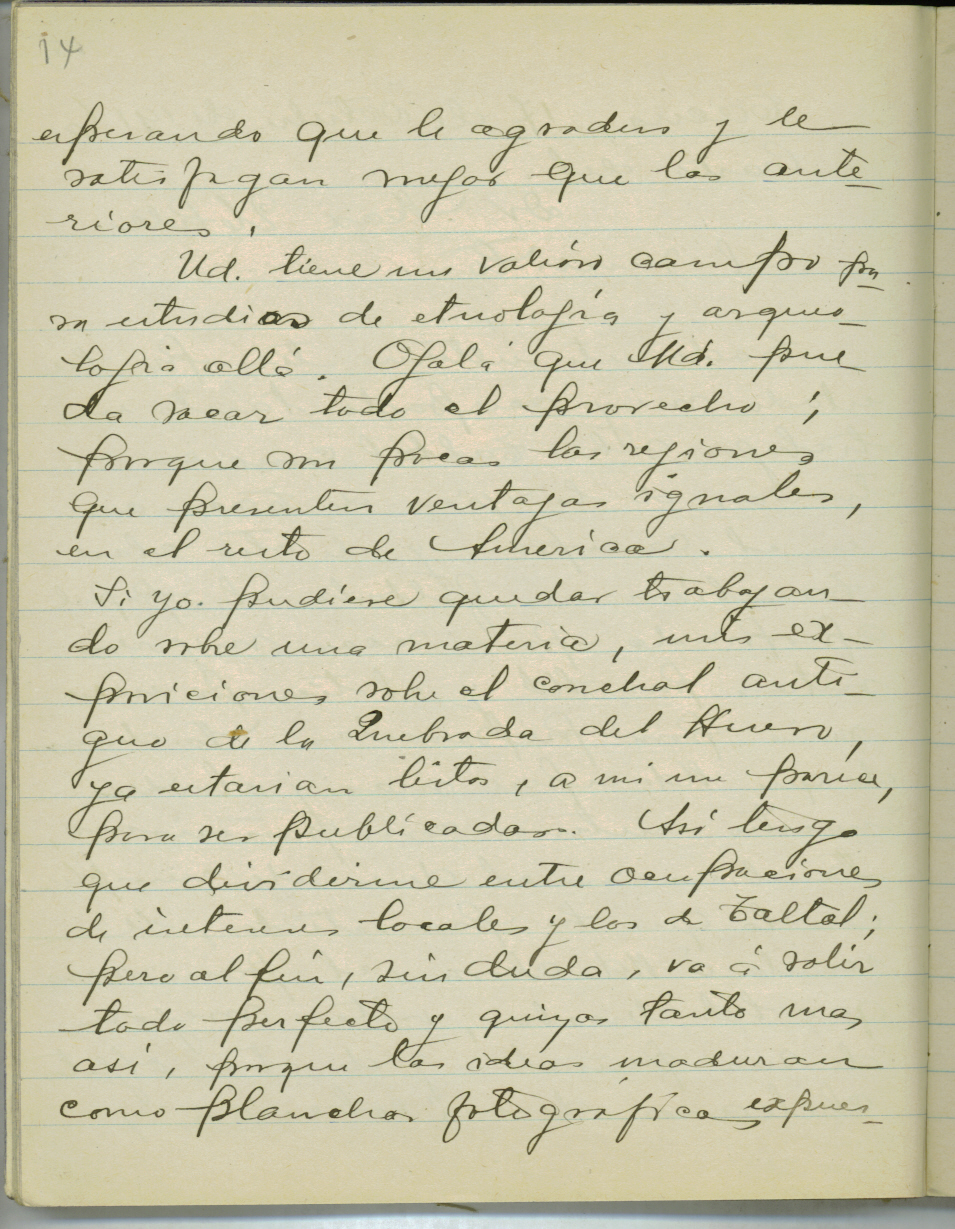 14
esperando que le agraden y le
satisfagan mejor que las ante-
riores.
Ud. tiene un valioso campo pa-
ra estudios de etnología y arqueo-
logia allá. Ojalá que Ud. pue
da sacar todo el provecho;
porque son pocas las regiones
que presenten ventajas iguales,
en el resto de America.
Si yo pudiese quedar trabajan-
do sobre una materia, mis ex-
posiciones sobre el conchal anti-
guo de la Quebrada del Hueso,
ya estarian listos, a mi me parece,
para ser publicadas. Asi tengo
que dividirme entre ocupaciones
de interes locales y los de Taltal;
pero al fin, sin duda, va á salir
todo perfecto y quizas tanto mas
asi, porque las ideas maduran
como planchas fotográficas expues-